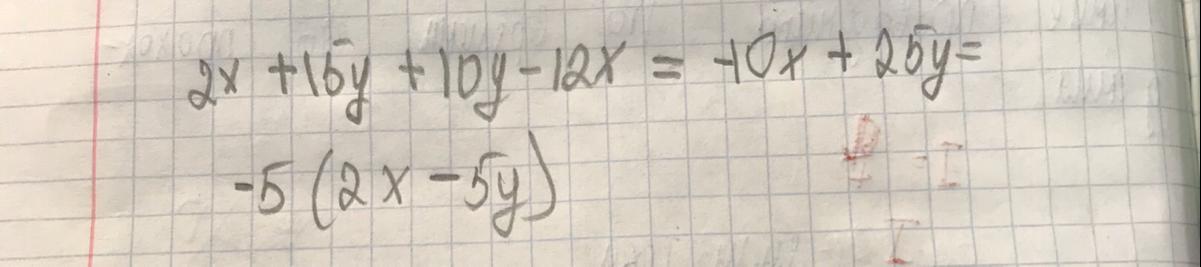 2x + 15y + 10y - 12x = -10x + 25y =
-5 (2x - 5y)